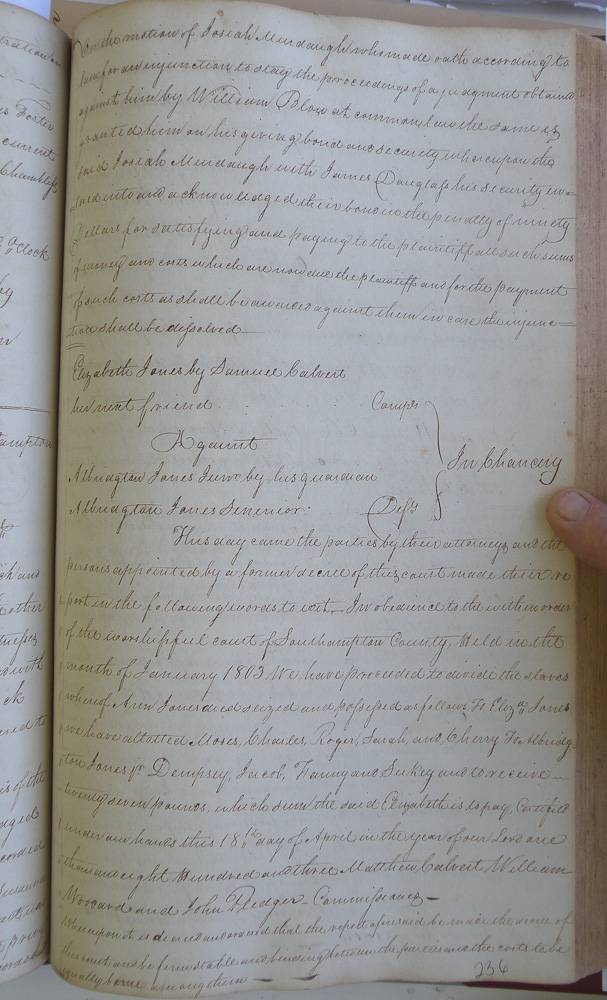 On the motion of Josiah Mendaugh who made oath according to
law for an injunction to stay the proceedings of a judgment obtained
against him by William Blow at common law the same is
granted him on his giving bond and security whereupon the
said Josiah Mendaugh with James Douglass his security en=
tered into and acknowledged their bond in the penalty of ninety
Dollars for satisfying and paying to the plaintiff all such sums
of money and costs which are now due the plaintiff and for the payment
of such costs as shall be awarded against them in case the injunc=
tion shall be dissolved
Elizabeth Jones by Samuel Calvert
her next friend Compt
Against
In Chancery
Albridgton Jones Junr by his guardian
Albridgton Jones Senenior. Defts
This day came the parties by their attorneys and the
persons appointed by a former decree of this court made their re
port in the following words to wit, In obedience to the within order
of the worshipful court of Southampton County, Held in the
month of January 1803 We have proceeded to divide the slaves
whereof Ann Jones died seized and possessed as follows To Elizath Jones
we have allotted Moses, Charles, Roger, Sarah, and Cherry To Albridg
ton Jones jr Dempsey, Jacob, Fanny and Sukey and to receive
twenty seven pounds, which sum the said Elizabeth is to pay, Certified
under our hands this 18th day of April in the year of our Lord one
thousand eight Hundred and three Matthew Calvert William
Woodard and John Pledger - Commissioners -
Whereupon it is decreed and ordered that the report aforesaid be made the decree of
this court and be firm stable and binding between the parties and the costs to be
equally borne among them
236